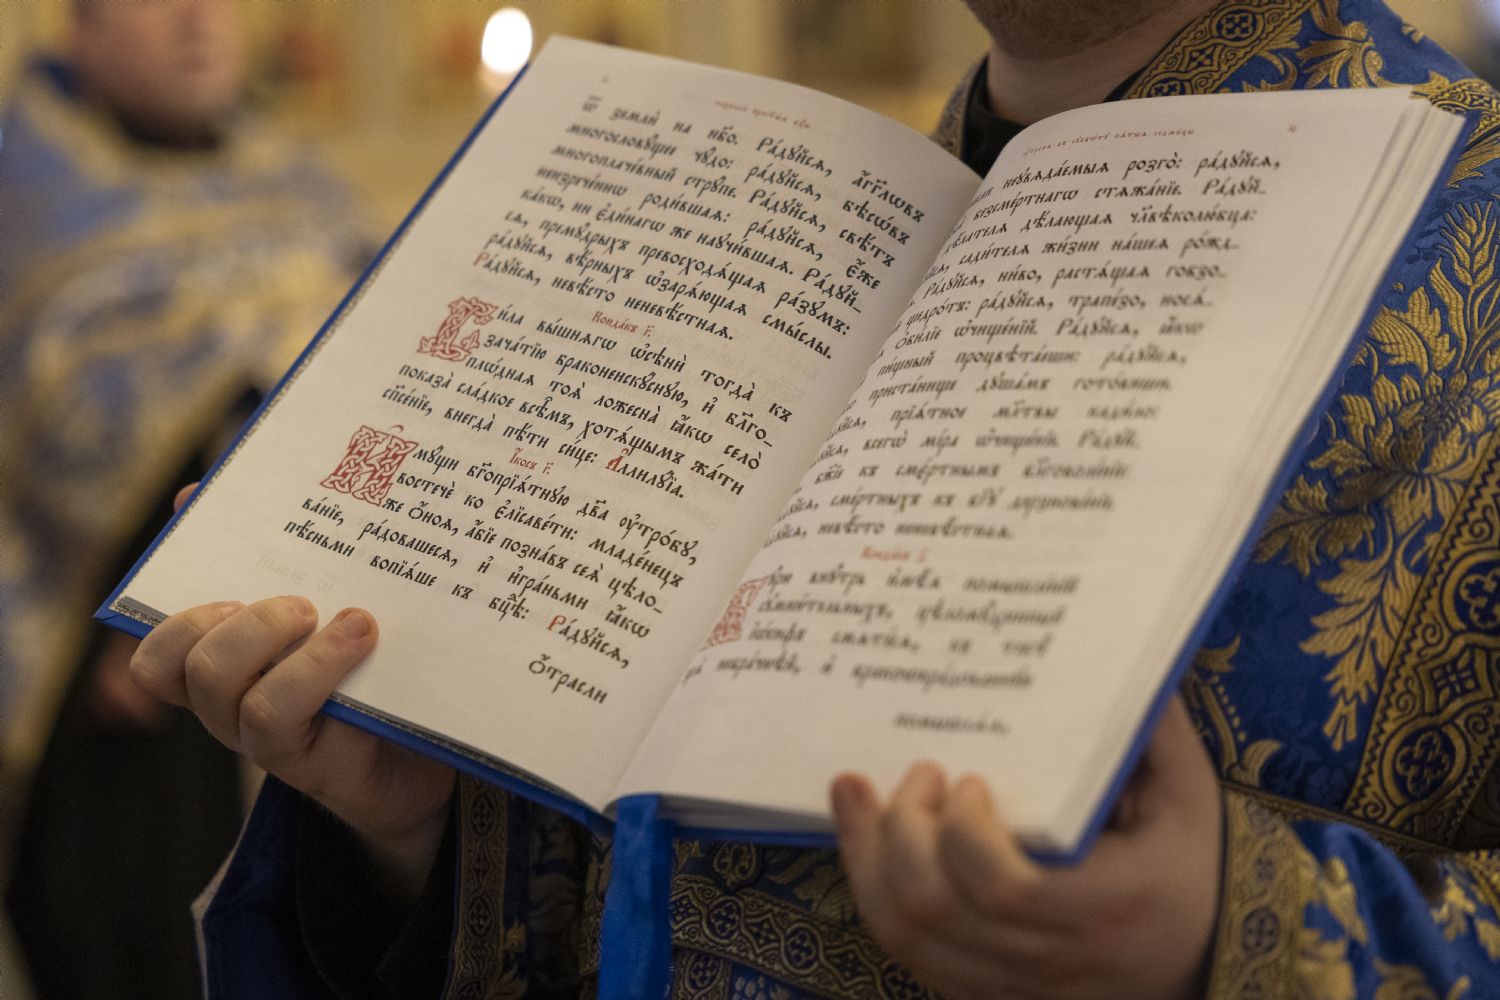 ѿ земли́ на нб҃о. Ра́дꙋйсѧ, а҆́гг҃лѡвъ
многослову́щее чꙋ́до: ра́дꙋйсѧ, бѣсѡ́въ
многоплаче́вный стрꙋ́пе. Ра́дꙋйсѧ, свѣ́тъ
неизрече́ннѡ роди́вшаѧ: ра́дꙋйсѧ, є҆́же
ка́кѡ, ни є҆ди́нагѡ же наꙋчи́вшаѧ. Ра́дꙋй_
сѧ, премꙋ́дрыхъ превосходѧ́щаѧ ра́зꙋмъ:
ра́дꙋйсѧ, вѣ́рныхъ ѡ҆зарѧ́ющаѧ смы́слы.
Ра́дꙋйсѧ, невѣ́сто неневѣ́стнаѧ.
Конда́къ г҃.
Си́ла вы́шнѧгѡ ѡ҆сѣнѝ тогда̀ къ
зача́тїю браконеискꙋ́снꙋю, и҆ бл҃го_
пло́днаѧ тоѧ̀ ложесна̀ ꙗ҆́кѡ село̀
показа̀ сла́дкое всѣ̑мъ, хотѧ́щымъ жа́ти
сп҃се́нїе, внегда̀ пѣ́ти си́це: А҆ллилꙋ́їа.
І҆́косъ г҃.
И҆мꙋ́щи бг҃опрїѧ́тнꙋю дв҃а ᲂу҆тро́бꙋ,
востечѐ ко є҆лїсаве́ти: младе́нецъ
же ѻ҆́ноѧ, а҆́бїе позна́въ сеѧ̀ цѣло_
ва́нїе, ра́довашесѧ, и҆ и҆гра́ньми ꙗ҆́кѡ
пѣ́сньми вопїѧ́ше къ бц҃ѣ: Ра́дꙋйсѧ,
ѻ҆́трасли
неꙋвѧда́емыѧ розго̀: ра́дꙋйсѧ,
безсме́ртнагѡ стѧжа́нїе. Ра́дꙋй_
дѣ́лателѧ дѣ́лающаѧ чл҃вѣколю́бца:
сади́телѧ жи́зни на́шеѧ ро́жд_
Ра́дꙋйсѧ, ни́во, растѧ́щаѧ гобзо_
щедро́тъ: ра́дꙋйсѧ, трапе́зо, носѧ́_
ѻ҆би́лїе ѡ҆чище́нїй. Ра́дꙋйсѧ, ꙗ҆́кѡ
пи́щный процвѣта́еши: ра́дꙋйсѧ,
приста́нище дꙋша́мъ гото́виши.
прїѧ́тное мл҃твы кади́ло:
всегѡ̀ мі́ра ѡ҆чище́нїе. Ра́дꙋй_
бж҃їе къ сме́ртнымъ бл҃говоле́нїе:
сме́ртныхъ къ бг҃ꙋ дерзнове́нїе.
невѣ́сто неневѣ́стнаѧ.
Конда́къ д҃.